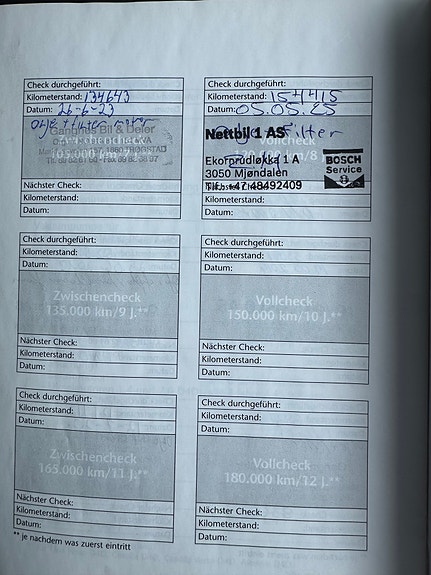 Check durchgeführt:
Kilometerstand: 134643
Datum: 26-6-23
olje + filter motor
Gardhus Bil & Deler
1880 TRØGSTAD
Nächster Check:
Kilometerstand:
Datum:
Check durchgeführt:
Kilometerstand: 154415
Datum: 05.05.25
olje Filter
Nettbil 1 AS
Ekornrudløkka 1 A
3050 Mjøndalen
Tlf. +47 48492409
BOSCH
Service
Kilometerstand:
Datum:
Check durchgeführt:
Kilometerstand:
Datum:
Zwischencheck
135.000 km/9 J.**
Nächster Check:
Kilometerstand:
Datum:
Check durchgeführt:
Kilometerstand:
Datum:
Vollcheck
150.000 km/10 J.**
Nächster Check:
Kilometerstand:
Datum:
Check durchgeführt:
Kilometerstand:
Datum:
Zwischencheck
165.000 km/11 J.**
Nächster Check:
Kilometerstand:
Datum:
Check durchgeführt:
Kilometerstand:
Datum:
Vollcheck
180.000 km/12 J.**
Nächster Check:
Kilometerstand:
Datum:
** je nachdem was zuerst eintritt